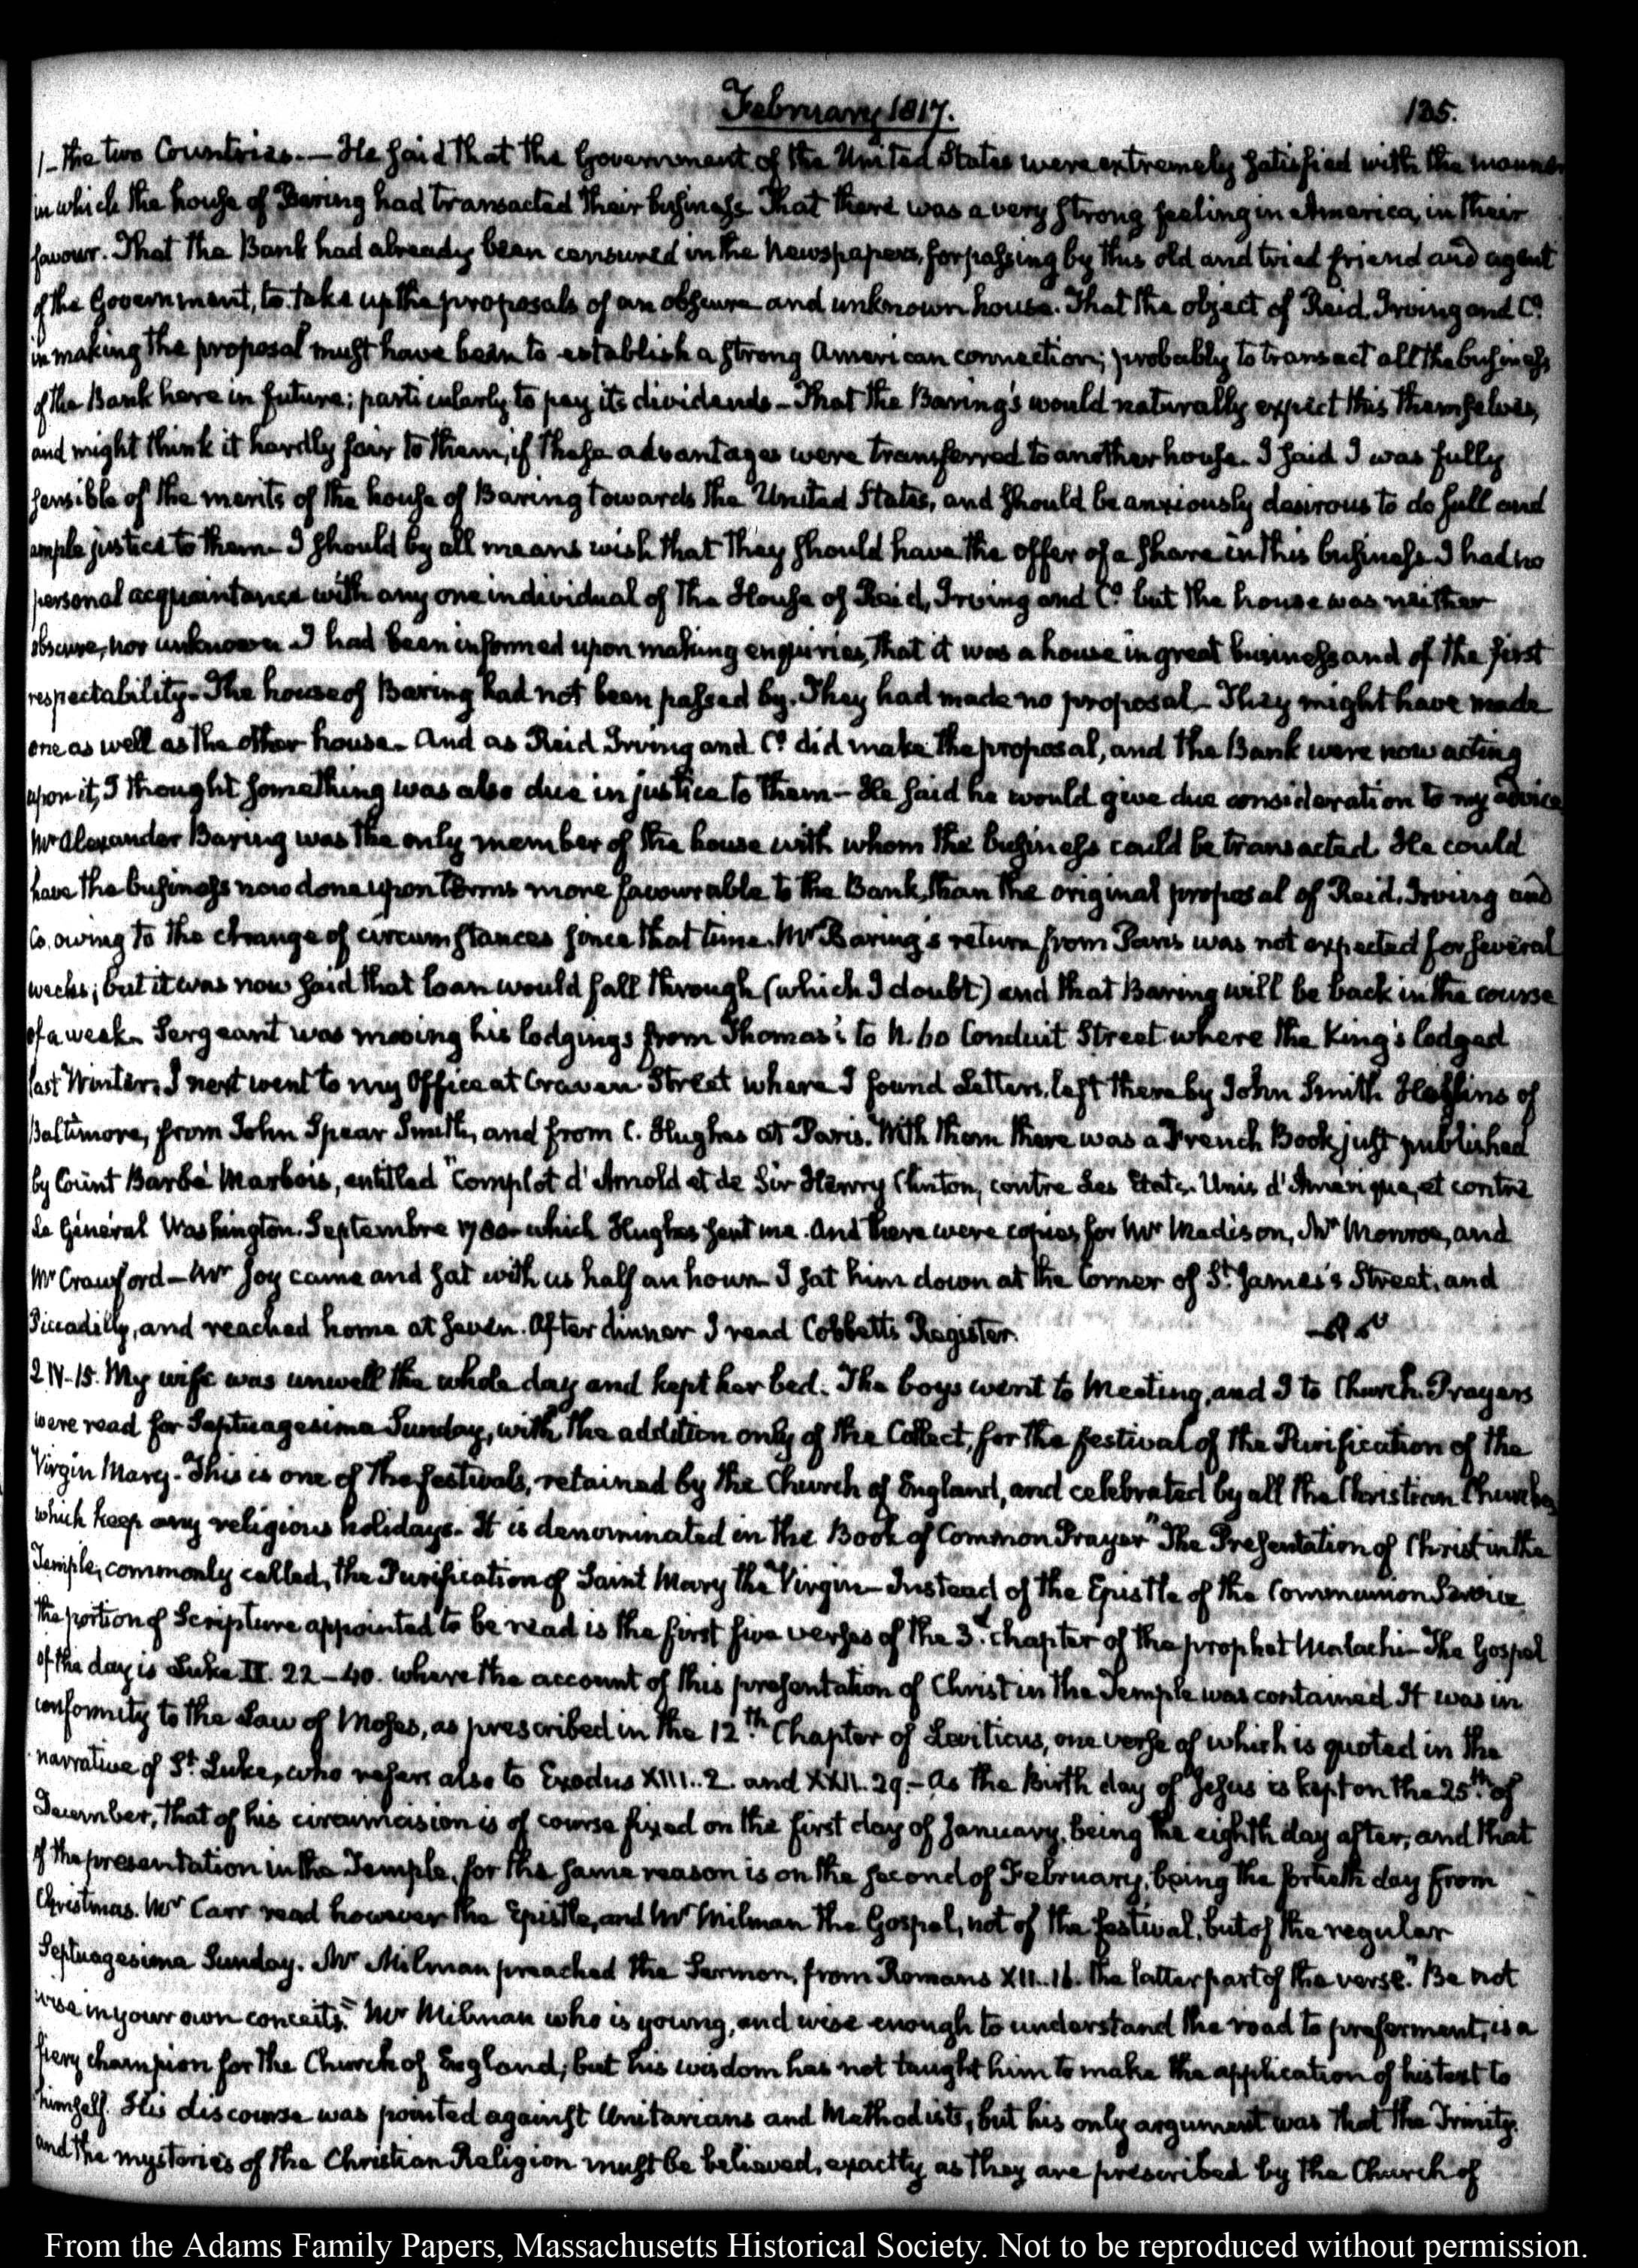 February 1817.
135.
1— the two Countries.— He said that the Government of the United States were extremely satisfied with the manner
in which the house of Baring had transacted their business That there was a very strong feeling in America, in their
favour. That the Bank had already been censured in the Newspapers, for passing by this old and tried friend and agent
of the Government, to take up the proposals of an obscure and unknown house. That the object of Reid, Irving and Co.
in making the proposal must have been to establish a strong American connection; probably to transact all the business
of the Bank here in future; particularly to pay its dividends— That the Baring's would naturally expect this themselves,
and might think it hardly fair to them, if these advantages were transferred to another house. I said I was fully
sensible of the merits of the house of Baring towards the United States, and should be anxiously desirous to do full and
ample justice to them— I should by all means wish that they should have the offer of a share in this business. I had no
personal acquaintance with any one individual of the House of Reid, Irving and Co. but the house was neither
obscure, nor unknown I had been informed upon making enquiries, that it was a house in great business and of the first
respectability— The house of Baring had not been passed by. They had made no proposal— They might have made
one as well as the other house— And as Reid Irving and Co. did make the proposal, and the Bank were now acting
upon it, I thought something was also due in justice to them— He said he would give due consideration to my advice
Mr Alexander Baring was the only member of the house with whom the business could be transacted. He could
have the business now done upon terms more favourable to the Bank, than the original proposal of Reid, Irving and
Co. owing to the change of circumstances since that time. Mr Baring's return from Paris was not expected for several
weeks; but it was now said that loan would fall through (which I doubt) and that Baring will be back in the course
of a week— Sergeant was moving his lodgings from Thomas's to N. 60 Conduit Street where the King's lodged
last Winter. I next went to my Office at Craven Street where I found Letters, left there by John Smith Hollins of
Baltimore, from John Spear Smith, and from C. Hughes at Paris. With them there was a French Book just published
by Count Barbé Marbois, entitled "Complot d'Arnold et de Sir Henry Clinton, contre Les Etats-Unis d'Amérique, et contre
Le Général Washington. Septembre 1780— which Hughes sent me. And there were copies for Mr Madison, Mr Monroe, and
Mr Crawford— Mr Joy came and sat with us half an hour— I sat him down at the Corner of St. James's Street, and
Piccadilly, and reached home at seven. After dinner I read Cobbett's Register.
2. IV-15. My wife was unwell the whole day and kept her bed. The boys went to Meeting, and I to Church. Prayers
were read for Septuagesima Sunday, with the addition only of the Collect, for the festival of the Purification of the
Virgin Mary— This is one of the festivals, retained by the Church of England, and celebrated by all the Christian Churches
which keep any religious holidays— It is denominated in the Book of Common Prayer "The Presentation of Christ in the
Temple, commonly called, the Purification of Saint Mary the Virgin— Instead of the Epistle of the Communion Service
the portion of Scripture appointed to be read is the first five verses of the 3d. chapter of the prophet Malachi— The Gospel
of the day is Luke II. 22-40. where the account of this presentation of Christ in the Temple was contained. It was in
conformity to the Law of Moses, as prescribed in the 12th. Chapter of Leviticus, one verse of which is quoted in the
narrative of St. Luke, who refers also to Exodus XIII..2. and XXII..29.— As the Birth day of Jesus is kept on the 25th. of
December, that of his circumcision is of course fixed on the first day of January, being the eighth day after, and that
of the presentation in the Temple, for the same reason is on the second of February, being the fortieth day from
Christmas. Mr Carr read however the Epistle, and Mr Milman the Gospel, not of the festival, but of the regular
Septuagesima Sunday. Mr Milman preached the Sermon, from Romans XII..16. the latter part of the verse. "Be not
wise in your own conceits." Mr Milman who is young, and wise enough to understand the road to preferment, is a
fiery champion for the Church of England; but his wisdom has not taught him to make the application of his text to
himself. His discourse was pointed against Unitarians and Methodists, but his only argument was that the Trinity,
and the mysteries of the Christian Religion must be believed, exactly as they are prescribed by the Church of
From the Adams Family Papers, Massachusetts Historical Society. Not to be reproduced without permission.